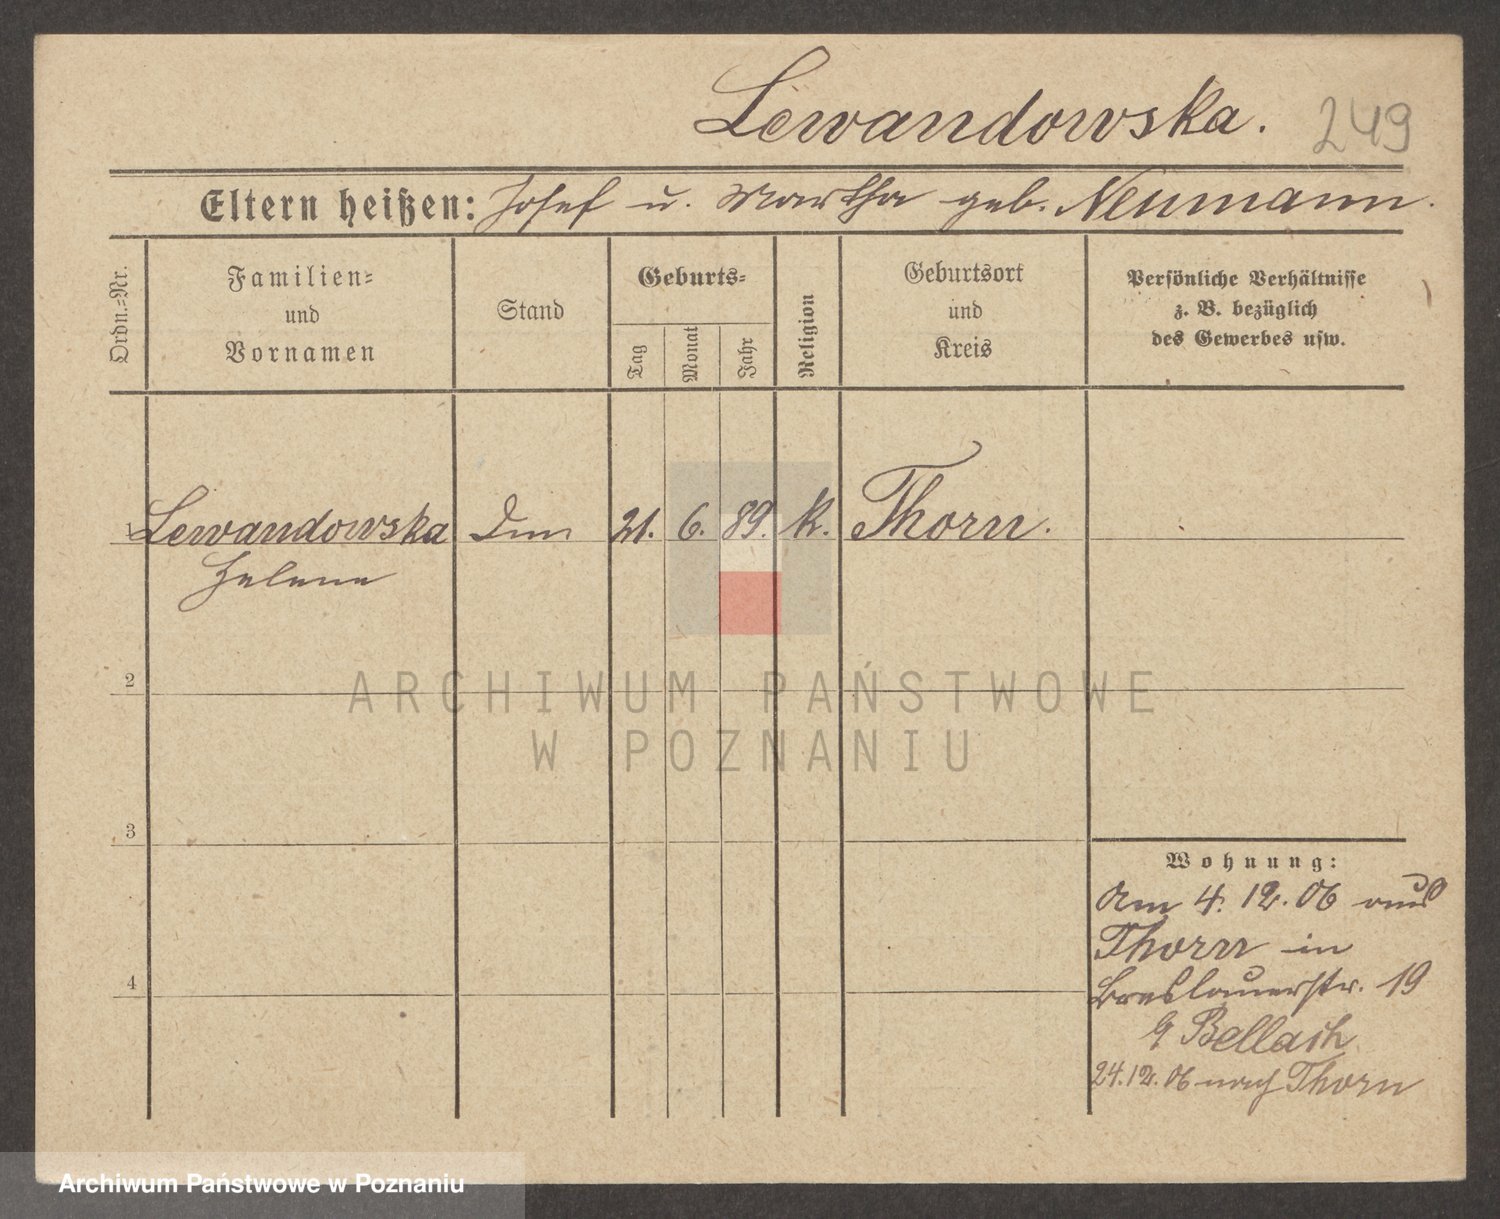 Lewandowska.
249
Eltern heißen: Josef u. Martha geb. Neumann.
Ordn.=Nr.
Familien=
und
Vornamen
Stand
Geburts=
Tag
Monat
Jahr
Religion
Geburtsort
und
Kreis
Persönliche Verhältnisse
z. B. bezüglich
des Gewerbes usw.
1 Lewandowska 21. 6. 89. k. Thorn.
Helene
2
ARCHIWUM PAŃSTWOWE
W POZNANIU
3
Wohnung:
Am 4. 12. 06 aus
Thorn in
4
Breslauerstr. 19
24.12.06 nach Thorn
Archiwum Państwowe w Poznaniu